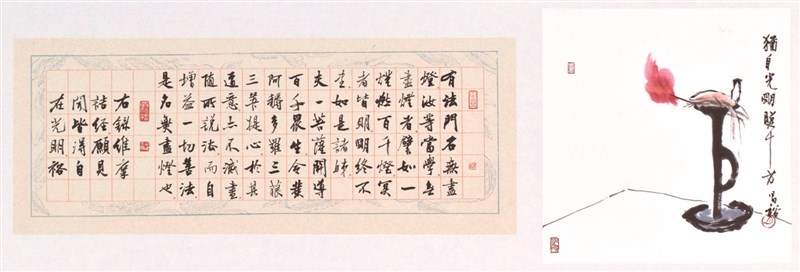 有法門名無盡
燈汝等當學无
盡燈者譬如一
燈燃百千燈冥
者皆明明終不
盡如是諸姊
夫一菩薩開導
百千眾生令發
阿耨多羅三藐
三菩提心於其
道意亦不滅盡
隨所說法而自
增益一切善法
是名無盡燈也
右錄維摩
詰經願見
聞皆得自
在光明裕
猶自光明暎十方
昌裕